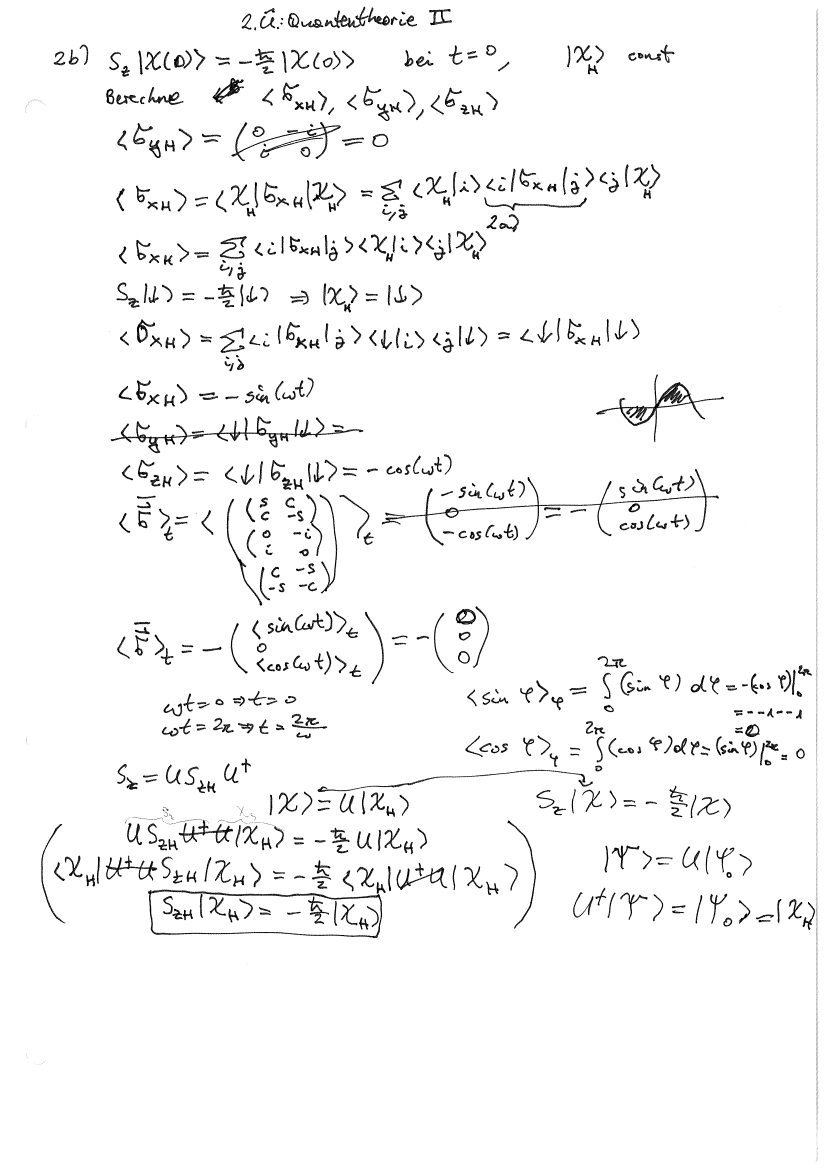 2. Ü.: Quantentheorie II
2b) S_z |χ(0)⟩ = -ℏ/2 |χ(0)⟩ bei t=0, |χ_H⟩ const
Berechne ⟨σ_xH⟩, ⟨σ_yH⟩, ⟨σ_zH⟩
⟨σ_yH⟩ = (0 -i; i 0) = 0
⟨σ_xH⟩ = ⟨χ_H|σ_xH|χ_H⟩ = Σ_{i,j} ⟨χ_H|i⟩⟨i|σ_xH|j⟩⟨j|χ_H⟩
2a)
⟨σ_xH⟩ = Σ_{i,j} ⟨i|σ_xH|j⟩⟨χ_H|i⟩⟨j|χ_H⟩
S_z|↓⟩ = -ℏ/2 |↓⟩ ⇒ |χ_H⟩ = |↓⟩
⟨σ_xH⟩ = Σ_{i,j} ⟨i|σ_xH|j⟩⟨↓|i⟩⟨j|↓⟩ = ⟨↓|σ_xH|↓⟩
⟨σ_xH⟩ = - sin(ωt)
⟨σ_yH⟩ = ⟨↓|σ_yH|↓⟩ =
⟨σ_zH⟩ = ⟨↓|σ_zH|↓⟩ = - cos(ωt)
⟨σ⃗⟩_t = ⟨((s c; c -s) (0 -i; i 0) (c -s; -s -c))⟩_t = (-sin(ωt); 0; -cos(ωt)) = -(sin(ωt); 0; cos(ωt))
⟨σ⃗⟩_t = -(⟨sin(ωt)⟩_t; 0; ⟨cos(ωt)⟩_t) = -(0; 0; 0)
ωt=0 ⇒ t=0
ωt=2π ⇒ t=2π/ω
⟨sin φ⟩_φ = ∫_0^{2π} (sin φ) dφ = -(cos φ)|_0^{2π}
= --1--1
= 0
⟨cos φ⟩_φ = ∫_0^{2π} (cos φ) dφ = (sin φ)|_0^{2π} = 0
S_z = U S_zH U†
|χ⟩ = U|χ_H⟩ S_z|χ⟩ = -ℏ/2 |χ⟩
U S_zH U†U|χ_H⟩ = -ℏ/2 U|χ_H⟩
⟨χ_H|U†U S_zH|χ_H⟩ = -ℏ/2 ⟨χ_H|U†U|χ_H⟩
S_zH|χ_H⟩ = -ℏ/2 |χ_H⟩
|Ψ⟩ = U|φ_0⟩
U†|Ψ⟩ = |Ψ_0⟩ = |χ_H⟩